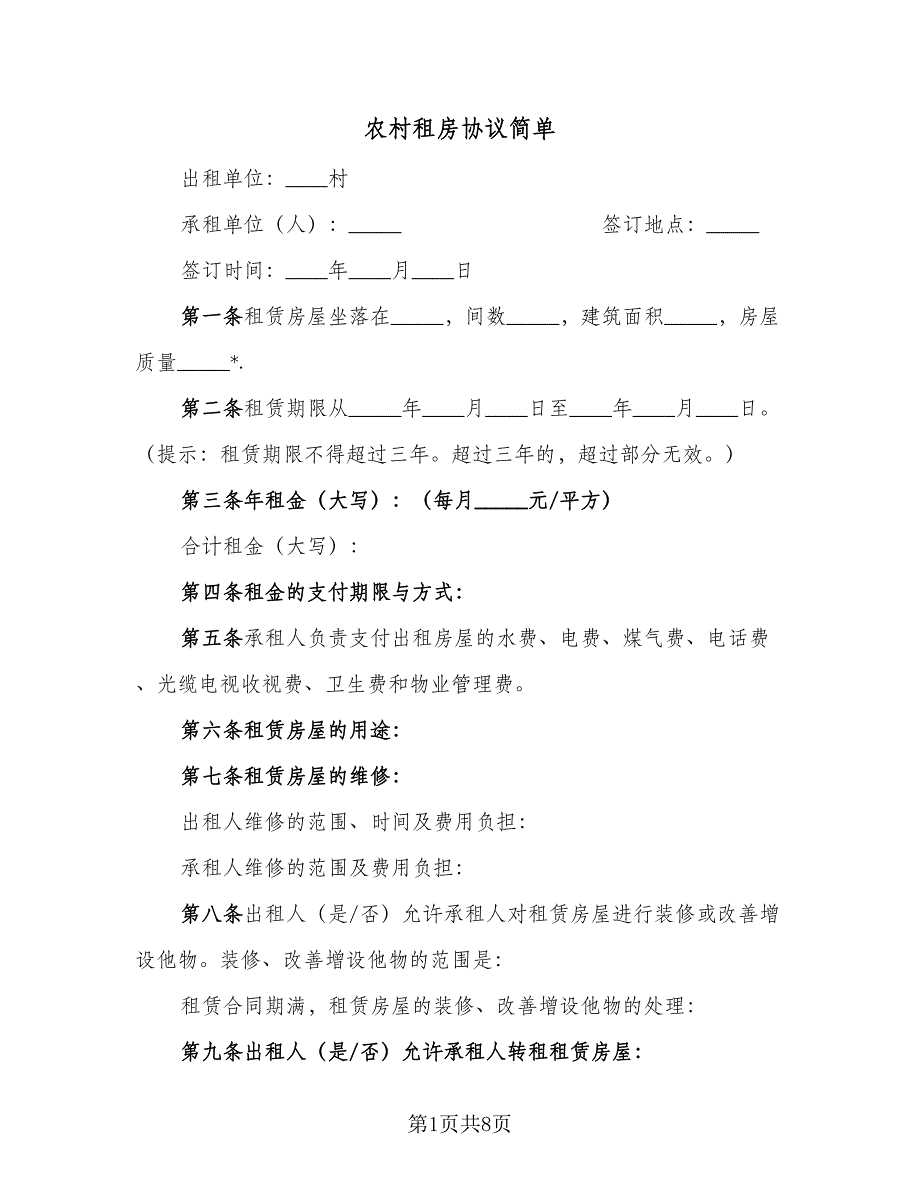 农村租房协议简单
出租单位：____村
承租单位（人）：_____ 签订地点：_____
签订时间：____年____月____日
第一条租赁房屋坐落在_____，间数_____，建筑面积_____，房屋
质量_____*.
第二条租赁期限从_____年____月____日至____年____月____日。
（提示：租赁期限不得超过三年。超过三年的，超过部分无效。）
第三条年租金（大写）：（每月_____元/平方）
合计租金（大写）：
第四条租金的支付期限与方式：
第五条承租人负责支付出租房屋的水费、电费、煤气费、电话费
、光缆电视收视费、卫生费和物业管理费。
第六条租赁房屋的用途：
第七条租赁房屋的维修：
出租人维修的范围、时间及费用负担：
承租人维修的范围及费用负担：
第八条出租人（是/否）允许承租人对租赁房屋进行装修或改善增
设他物。装修、改善增设他物的范围是：
租赁合同期满，租赁房屋的装修、改善增设他物的处理：
第九条出租人（是/否）允许承租人转租租赁房屋：
第1页共8页